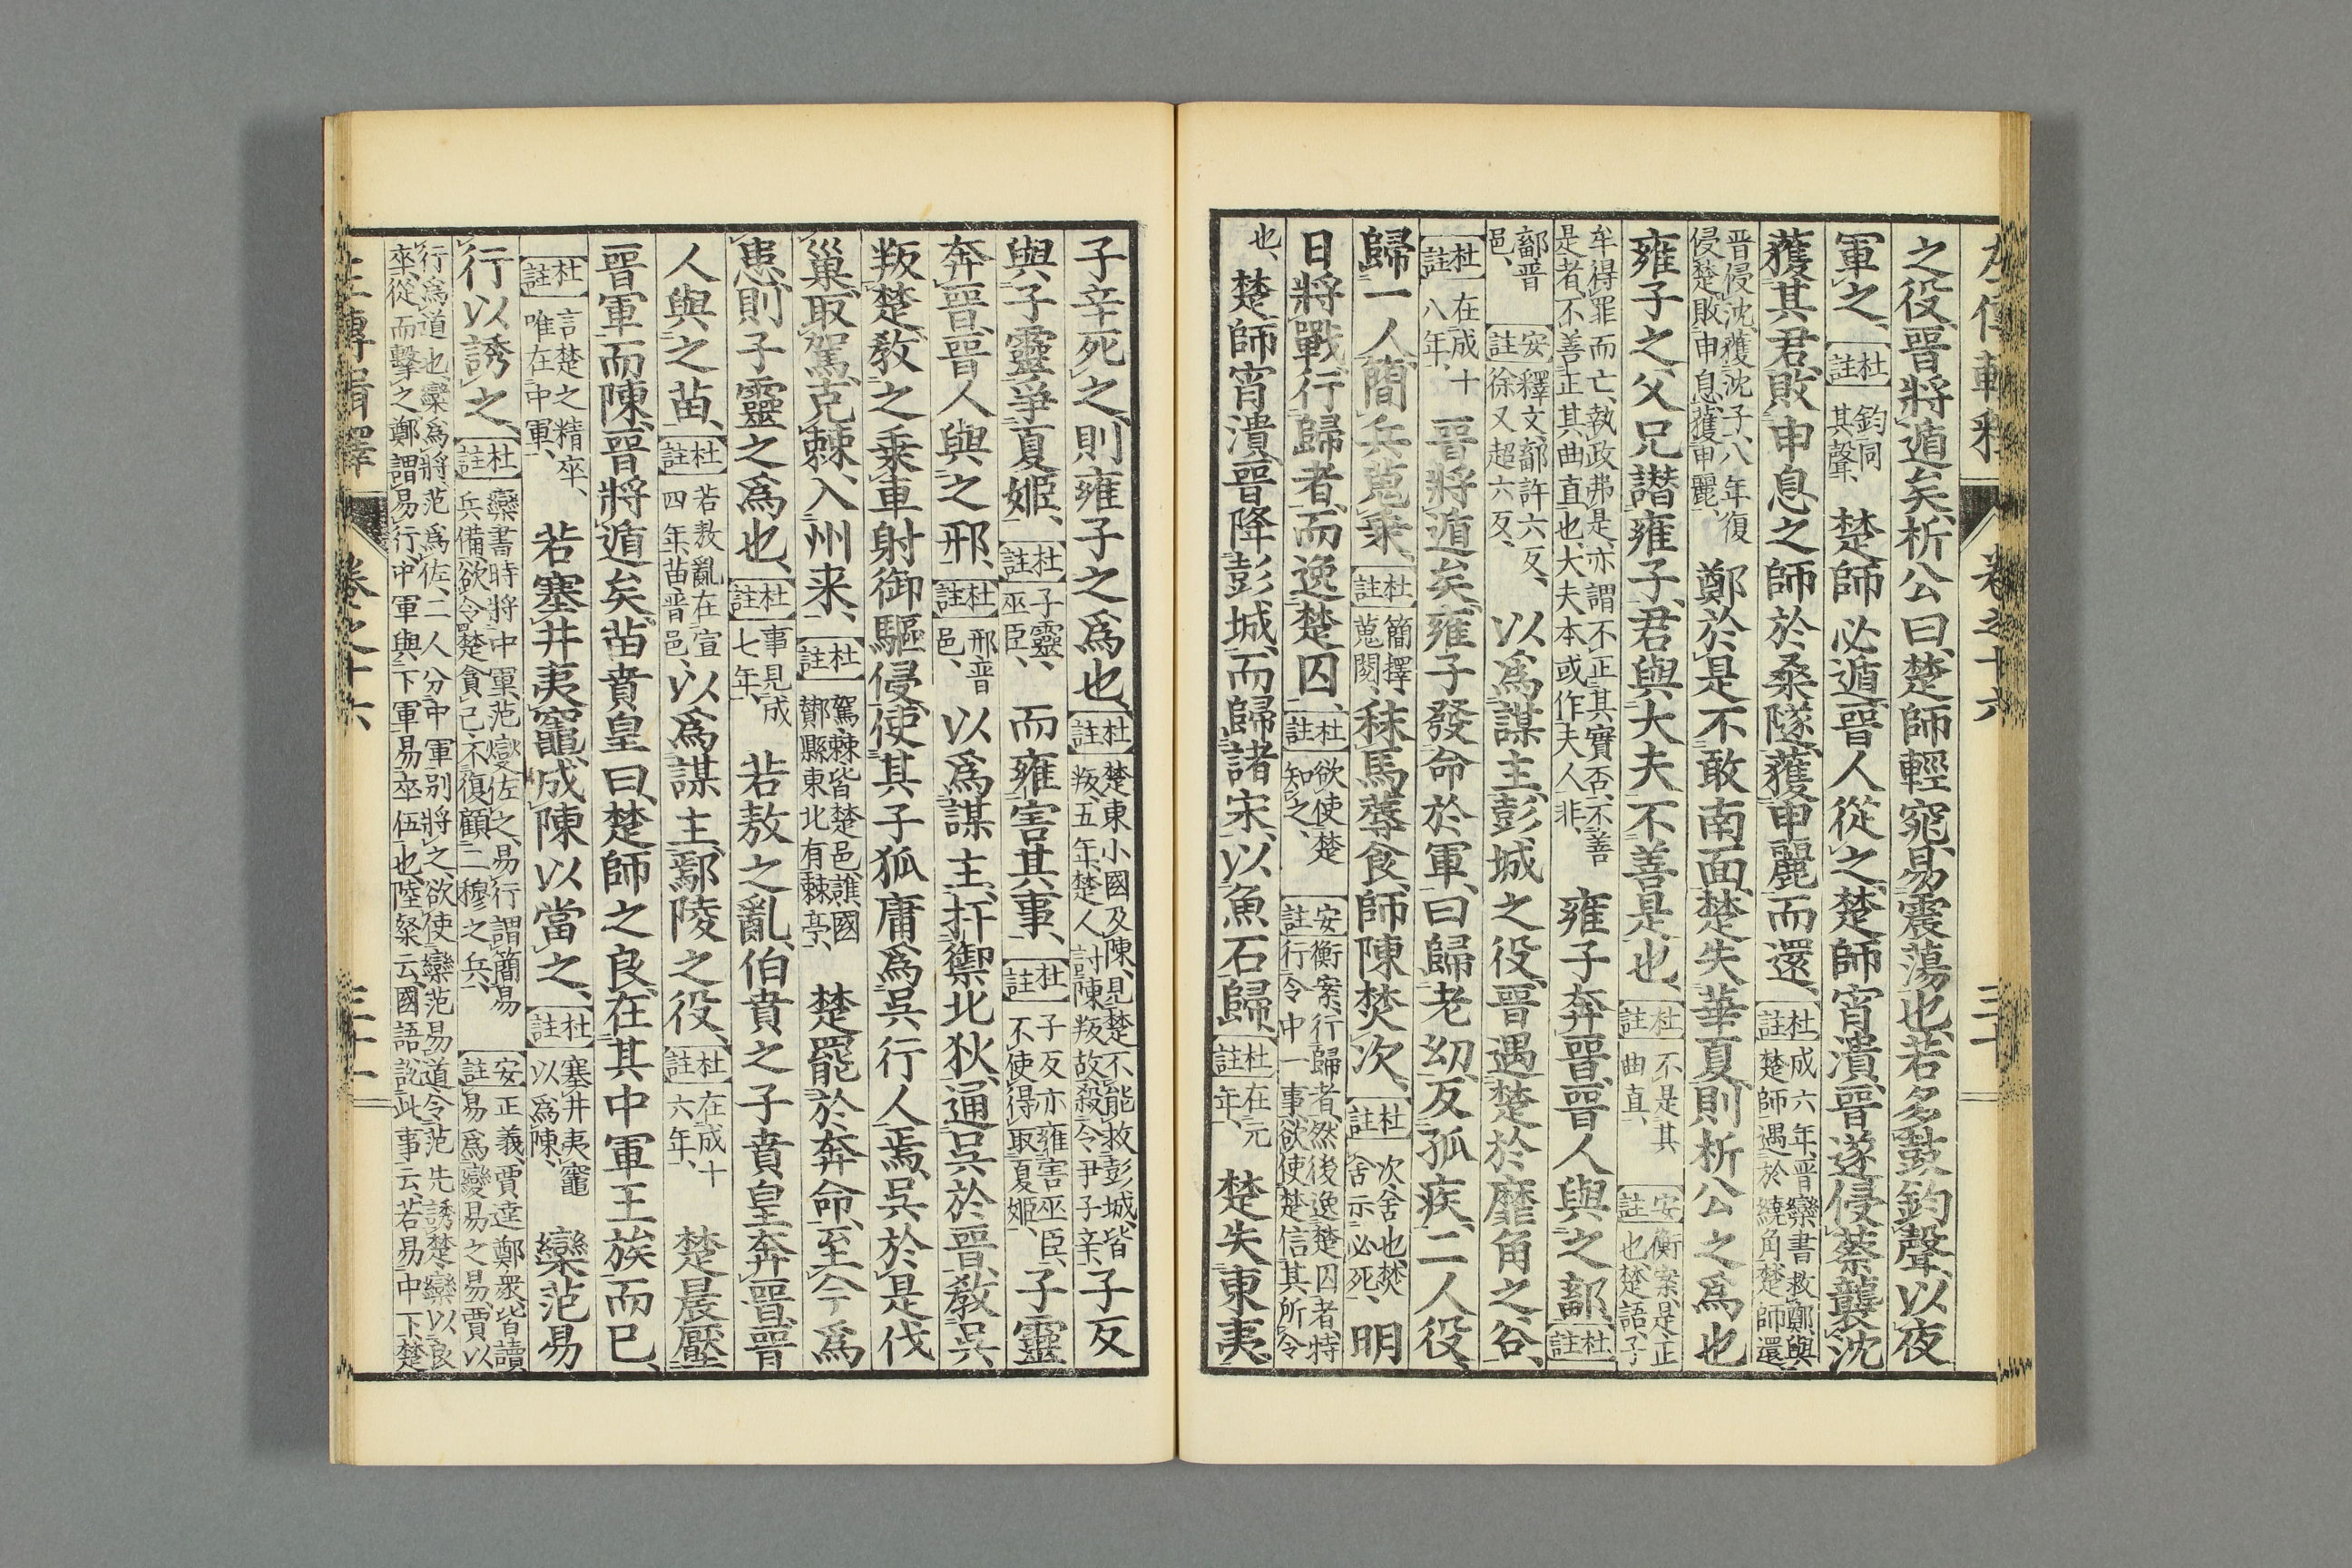 之役晉將遁矣、析公曰、楚師輕窕、易震蕩也、若多鼓鈞聲、以夜
軍之、杜註鈞同其聲、楚師必遁、晉人從之、楚師宵潰、晉遂侵蔡襲沈
獲其君、敗申息之師於桑隧、獲申麗而還、杜註成六年、晉欒書救鄭、與楚師遇於繞角、楚師還、
晉侵沈、獲沈子、八年復侵楚、敗申息、獲申麗、鄭於是不敢南面、楚失華夏、則析公之爲也
雍子之父兄譖雍子、君與大夫不善是也、杜註不是其曲直、安註衡案、是、正也、楚語、子
牟得罪而亡、執政弗是、亦謂不正其實否、不善是者、不善正其曲直也、大夫、本或作夫人、非、雍子奔晉、晉人與之鄐、杜註
鄐晉邑、安註釋文、鄐、許六反、徐又超六反、以爲謀主、彭城之役、晉遇楚於靡角之谷、
杜註在成十八年、晉將遁矣、雍子發命於軍、曰歸老幼、反孤疾、二人役、
歸一人、簡兵蒐乘、杜註簡擇蒐閱、秣馬蓐食、師陳焚次、杜註次、舍也、焚舍示必死、明
日將戰、行歸者、而逸楚囚、杜註欲使楚知之、安註衡案、行歸者、然後逸楚囚者、特行令中一事、欲使楚信其所令
也、楚師宵潰、晉降彭城、而歸諸宋、以魚石歸、杜註在元年、楚失東夷、
左傳輯釋 卷之十六
子辛死之、則雍子之爲也、杜註楚東小國及陳、見楚不能救彭城、皆叛、五年、楚人討陳叛故、殺令尹子辛、子反
與子靈爭夏姬、杜註子靈、巫臣、而雍害其事、杜註子反亦雍害巫臣、不使得取夏姬、子靈
奔晉、晉人與之邢、杜註邢晉邑、以爲謀主、扞禦北狄、通吳於晉、教吳
叛楚、教之乘車射御驅侵、使其子狐庸爲吳行人焉、吳於是伐
巢、取駕、克棘、入州來、杜註駕棘皆楚邑、譙國酇縣東北有棘亭、楚罷於奔命、至今爲
患、則子靈之爲也、杜註事見成七年、若敖之亂、伯賁之子賁皇奔晉、晉
人與之苗、杜註若敖亂在宣四年、苗晉邑、以爲謀主、鄢陵之役、杜註在成十六年、楚晨壓
晉軍而陳、晉將遁矣、苗賁皇曰、楚師之良、在其中軍王族而已、
杜註言楚之精卒、唯在中軍、若塞井夷竈、成陳以當之、杜註塞井夷竈以爲陳、欒范易
行以誘之、杜註欒書時將中軍、范燮佐之、易行謂簡易兵備、欲令楚貪己、不復顧二穆之兵、安註正義、賈逵鄭衆、皆讀易爲變易之易、賈以
行爲道也、欒爲將、范爲佐、二人分中軍別將之、欲使欒范易道、令范先誘楚、欒以良卒從而擊之、鄭謂易行、中軍與下軍易卒伍也、陸粲云、國語說此事云、若易中下、楚
左傳輯釋 卷之十六 三十一